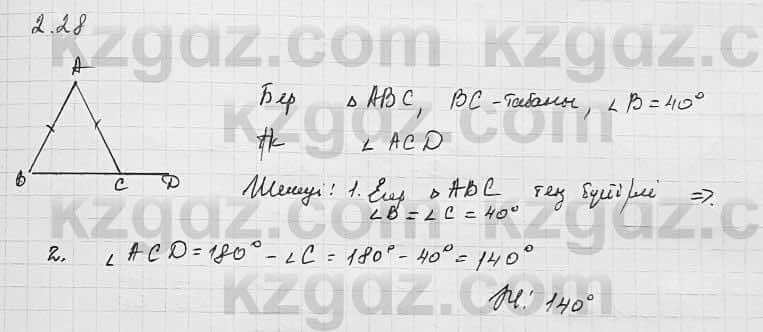 2.28
A
B
C
D
Бер ΔABC, BC-табаны, ∠B=40°
Тк ∠ACD
Шешуі: 1. Егер ΔABC тең бүйірлі ⇒
∠B=∠C=40°
2. ∠ACD=180°-∠C=180°-40°=140°
Ж: 140°
kzgdz.com
kzgdz.com
kzgdz.com
kzgdz.com
kzgdz.com